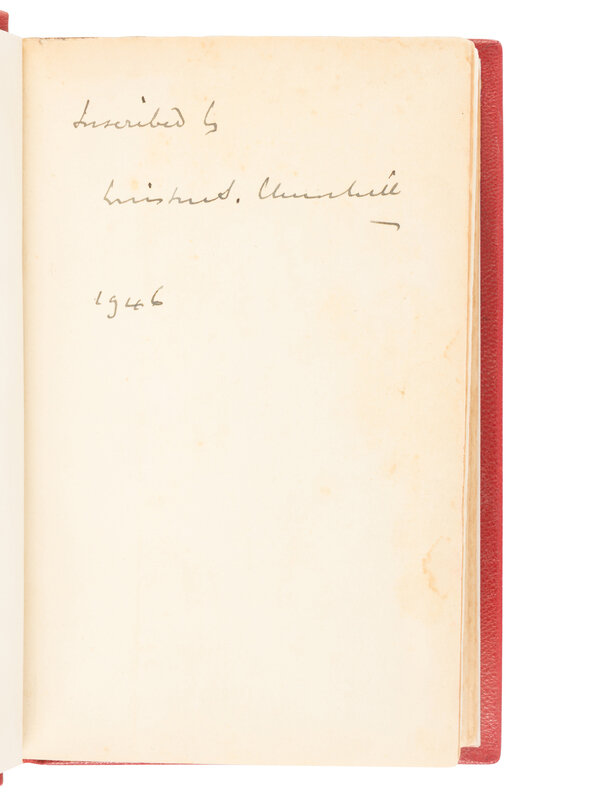 Inscribed by
Winston S. Churchill
1946